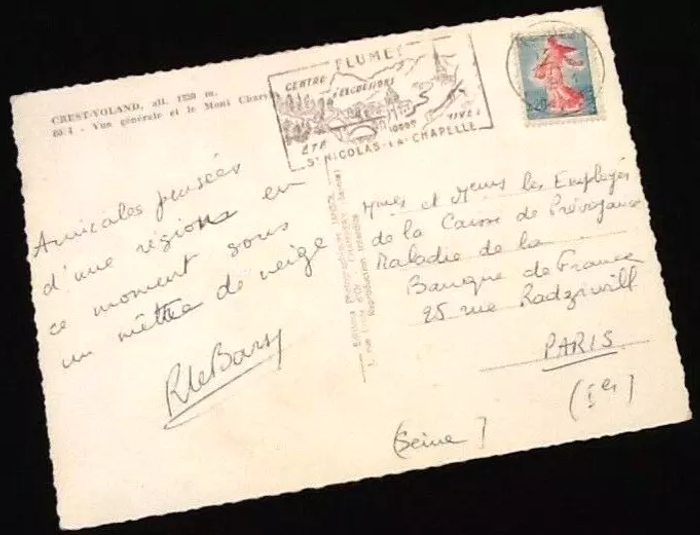 CREST-VOLAND, alt. 1230 m.
Vue générale et le Mont Charvin
FLUMET
CENTRE D'EXCURSIONS
ETE
ST NICOLAS-LA-CHAPELLE
Amicales pensées
d'une région en
ce moment sous
un mètre de neige
Mmes et Mrs les Employés
de la Caisse de Prévoyance
Maladie de la
Banque de France
25 rue Radziwill
PARIS
(Ier)
(Seine)
Reproduction interdite